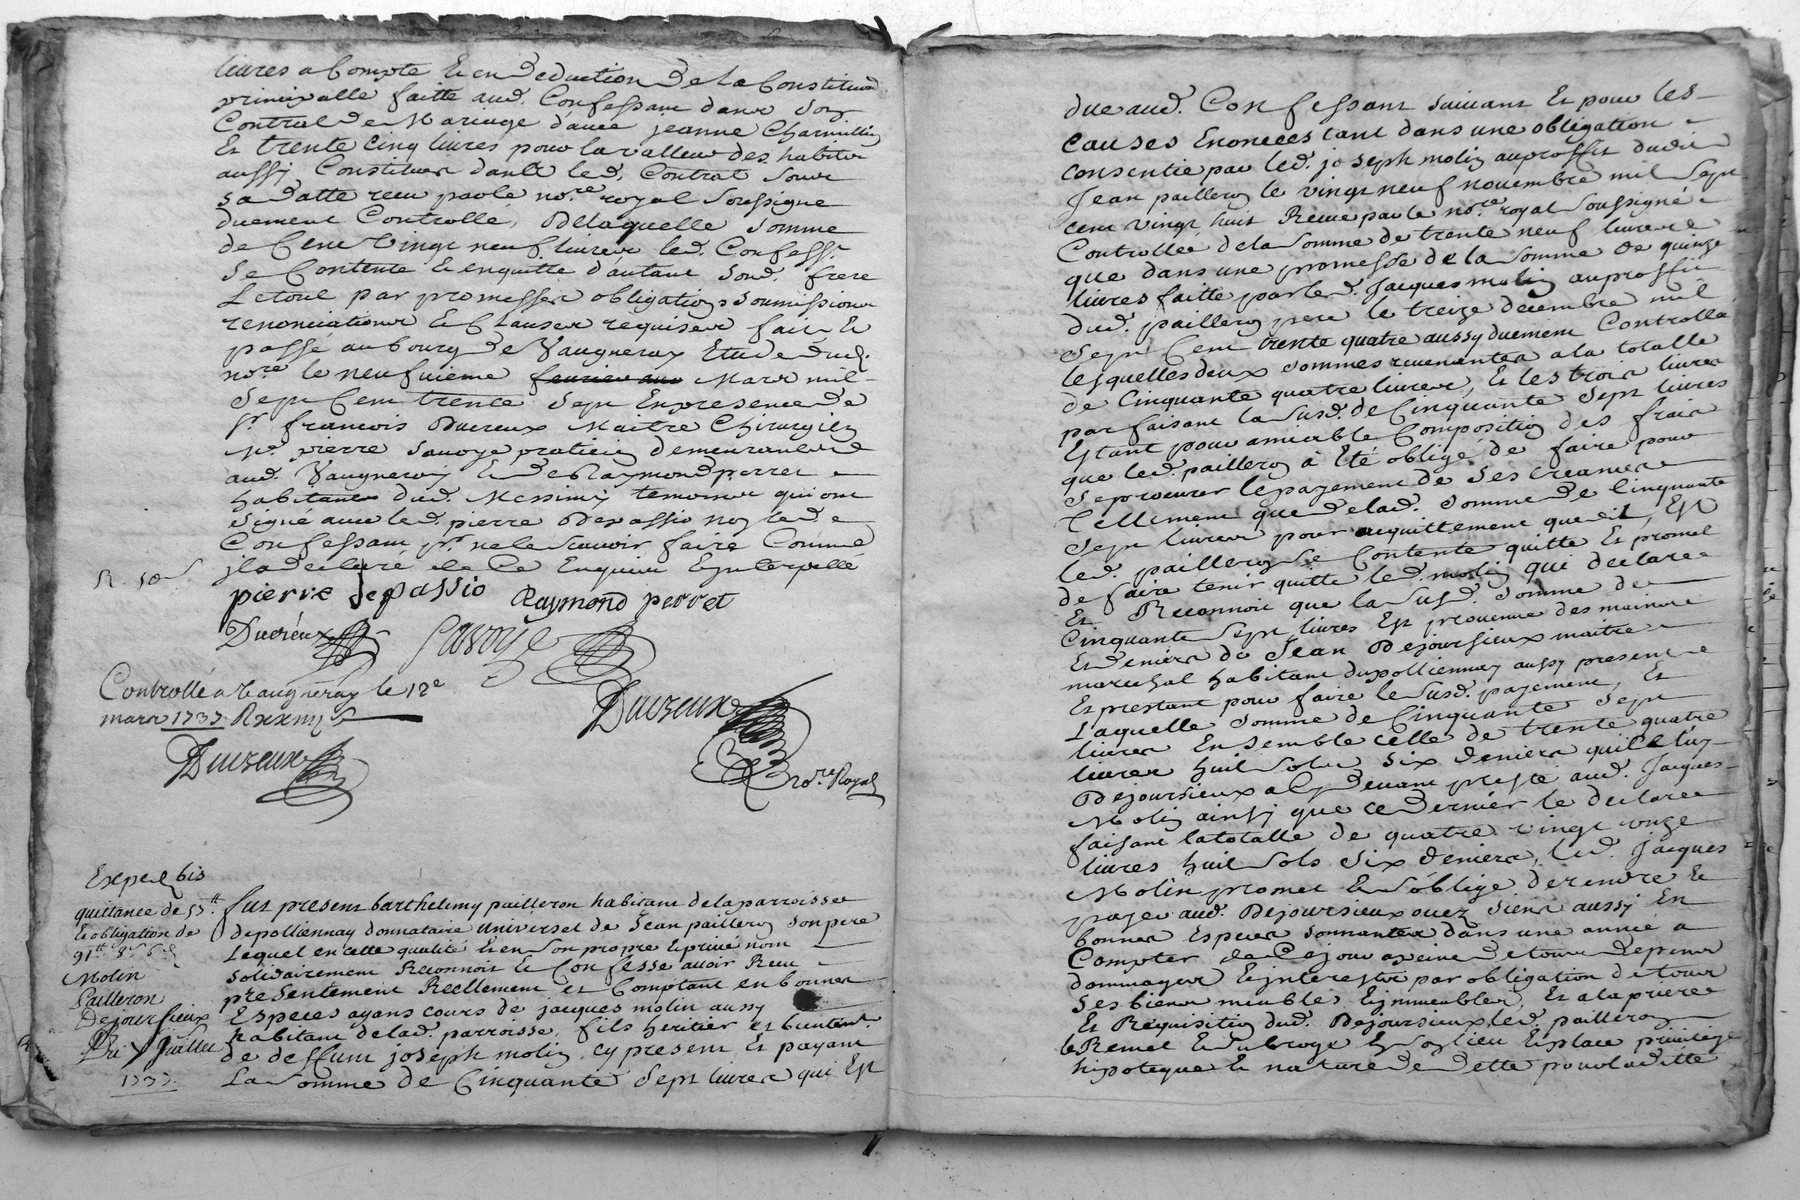 livres a Compte & en deduction de la Constitution
principalle faitte aud. Confessant dans son
Contrat de Mariage d'avec jeanne Charmillon
Et trente cinq livres pour la valleur des habits
aussy Constitues dans led. Contrat sous
sa datte receu par le no.re royal soussigne
duement Controlle, de laquelle somme
de Cent vingt neuf livres led. Confess.t
se Contente & en quitte d'autant sond. frere
Le tout par promesses obligations soumissions
renonciations & Clauses requises fait &
passé au bourg de Vaugneray Etude dud.
no.re le neufvieme Mars mil
sept Cent trente sept En presence de
s.r francois Ducreux Maitre Chirurgien
M.e pierre Savoye praticien demeurants
aud. Vaugneray & de Raymond perret
habitant dud. Messimy temoins qui ont
signé avec led. pierre Depassio non led.
Confessant p.r ne le scavoir faire Comme
jl a declaré de Ce Enquis & jnterpellé
pierre depassio Raymond perret
Ducreux Savoye
Controllé a Vaugneray le 12e
mars 1737
Ducreux
Ducreux
no.re Royal
Exped bis
quittance de 57.tt
& obligation de
91.tt 8.s 6.d
Molin
Pailleron
Dejoursieux
1737
fut present barthelemy pailleron habitant de la parroisse
de pollionnay donnataire universel de Jean pailleron son pere
Lequel en cette qualité & en son propre & privé nom
solidairement Reconnoit & Confesse avoir Receu
presentement Reellement et Comptant en bonnes
Especes ayans cours de jacques molin aussy
habitant de lad. parroisse, fils heritier et
de deffunt joseph molin cy present Et payant
La somme de Cinquante sept livres qui Est
due aud. Confessant suivant Et pour les
causes Enoncees tant dans une obligation
consentie par led. joseph molin au proffit dudit
Jean pailleron le vingt neuf novembre mil sept
cent vingt huit Receue par le no.re royal soussigné
Controllee de la somme de trente neuf livres
que dans une promesse de la somme de quinze
livres faitte par led. Jacques molin au proffit
dud. pailleron pere le treize decembre mil
sept Cent trente quatre aussy duement Controllé
lesquelles deux sommes revenantes a la totalle
de Cinquante quatre livres, Et les trois livres
parfaisant la susd. de Cinquante sept livres
Estant pour amiable Composition des frais
que led. pailleron à Eté obligé de faire pour
se procurer le payement de ses creances
Tellement que de lad. somme de Cinquante
sept livres pour acquittement que dit, Est
led. pailleron se Contente quitte Et promet
de faire tenir quitte led. molin qui declare
Et Reconnoit que la susd. somme de
Cinquante sept livres Est provenue des mains
Et deniers de Jean Dejoursieux maitre
marechal habitant du pollionnay aussy present
Et prestant pour faire le susd. payement, Et
Laquelle somme de Cinquante sept
livres Ensemble celle de trente quatre
livres huit sols six deniers que led.
Dejoursieux a cy devant presté aud. Jacques
Molin ainsy que ce dernier le declare
faisant la totalle de quatre vingt onze
livres huit sols six deniers, led. Jacques
Molin promet & s'oblige de rendre &
payer aud. Dejoursieux ou ez siens aussy En
bonnes Especes sonnantes dans une année a
Compter de Ce jour a peine de tous depens
dommages & jnterests par obligation de tous
ses biens meubles & jmmeubles, Et a la priere
Et Requisition dud. Dejoursieux led. pailleron
le Remet & subroge En son lieu & place privilege
hipoteque & nature de dette pour ladite